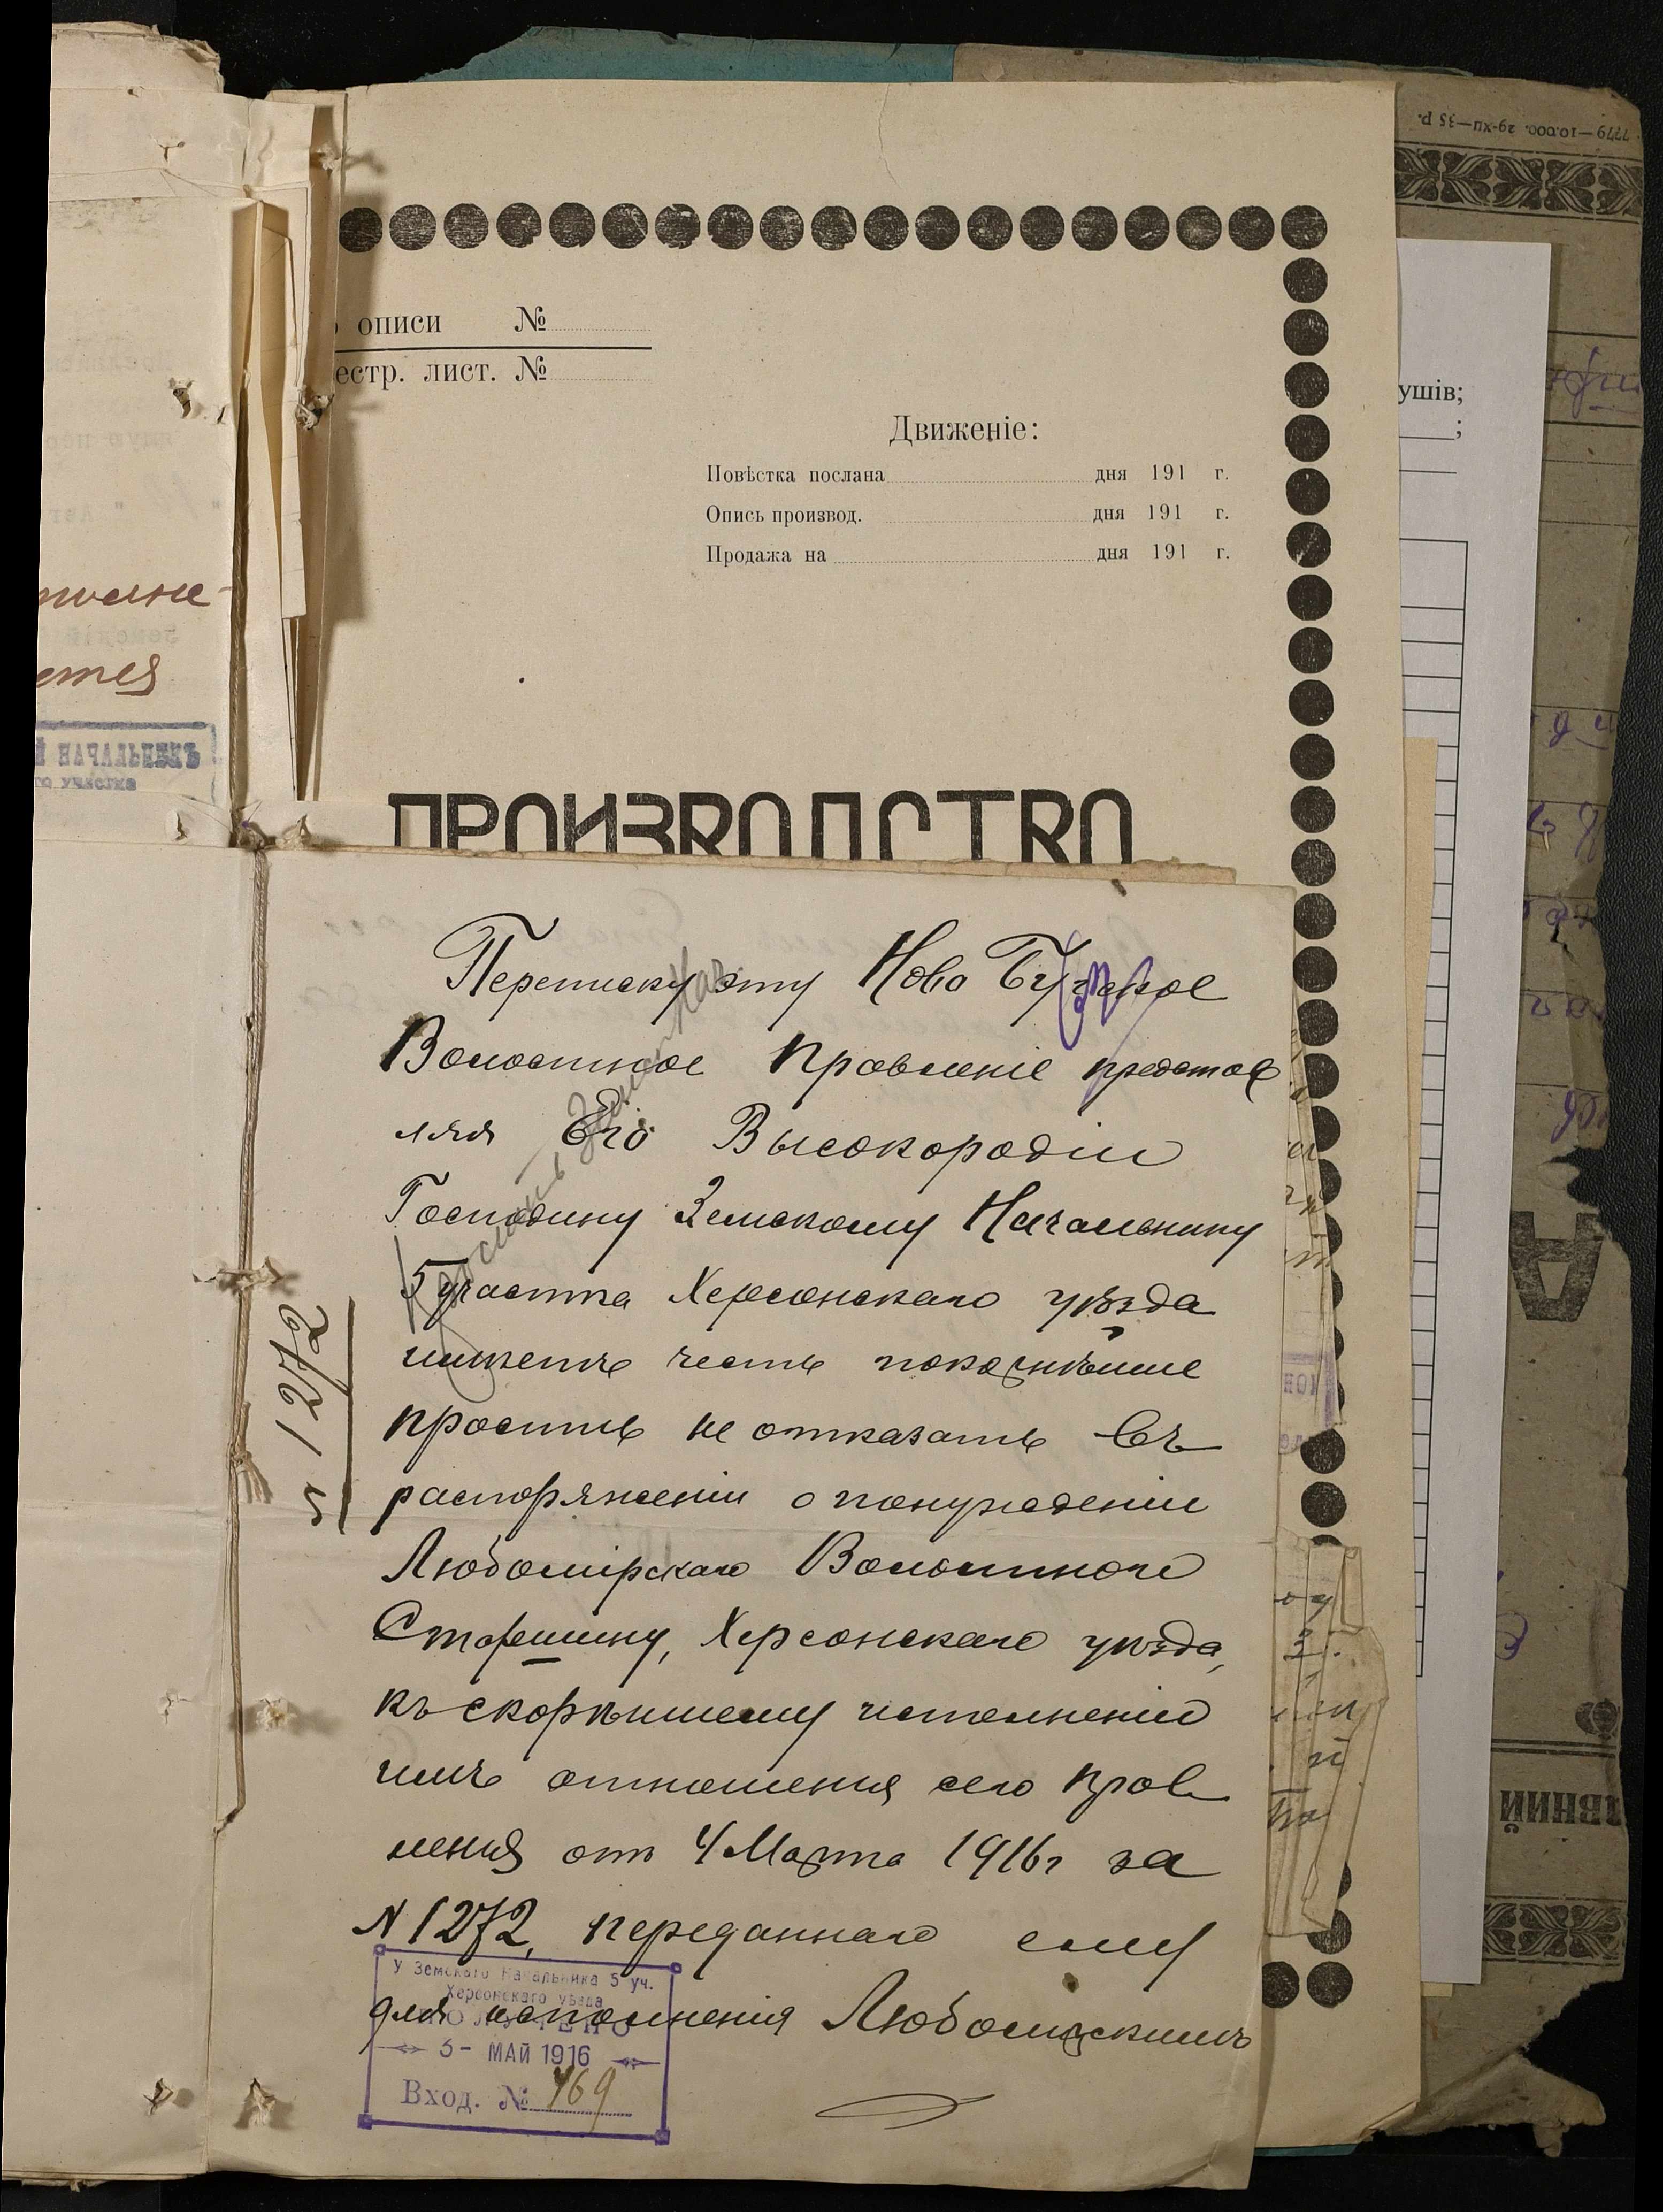 7779—10.000. 29-XII—35 р.
описи №
естр. лист. №
Движеніе:
Повѣстка послана дня 191 г.
Опись производ. дня 191 г.
Продажа на дня 191 г.
ушів;
;
ПРОИЗВОДСТВО
НАЧАЛЬНИКЪ
участка
Переписку эту Ново Бугское
Волостное Правленіе представ
ляя Его Высокородію
Господину Земскому Начальнику
5 участка Херсонскаго уѣзда
имѣетъ честь покорнѣйше
просить не отказать въ
распоряженіи о понужденіи
Любомірскаго Волостного
Старшину, Херсонскаго уѣзда,
къ скорѣйшему исполненію
имъ отношенія сего Прав
ленія отъ 4 Марта 1916 г за
N 1272, переданнаго ему
для исполненія Любомирскимъ
1272
У Земскаго Начальника 5 уч.
Херсонскаго уѣзда
ПОЛУЧЕНО
3- МАЙ 1916
Вход. № 769